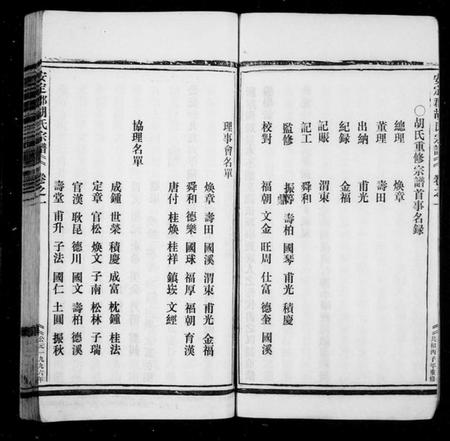 安定郡胡氏宗譜 卷之一
○胡氏重修宗譜首事名録
總理 煥章
董理 壽田
出納 甫光
紀録 金福
記賬 舜和
記工
監修 振 壽柏 國琴 甫光 積慶
校對 福朝 文金 旺周 仕富 德奎 國溪
民國丙子年重修
理事會名單
煥章 壽田 國溪 渭東 甫光 金福
舜和 德樂 國球 福厚 福朝 育漢
唐付 桂煥 桂祥 鎮崁 文經
協理名單
成鍾 世榮 積慶 成富 枕鍾 桂法
定章 官松 煥文 子南 松林 子瑞
官漢 耿昆 德川 國文 壽柏 德溪
壽堂 甫升 子法 國仁 土圓 振秋
安定郡胡氏宗譜 卷之一
公元一九九六年